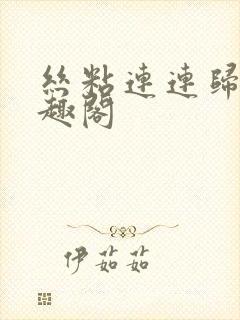 丝粘連連歸
趣閣
伊茹茹